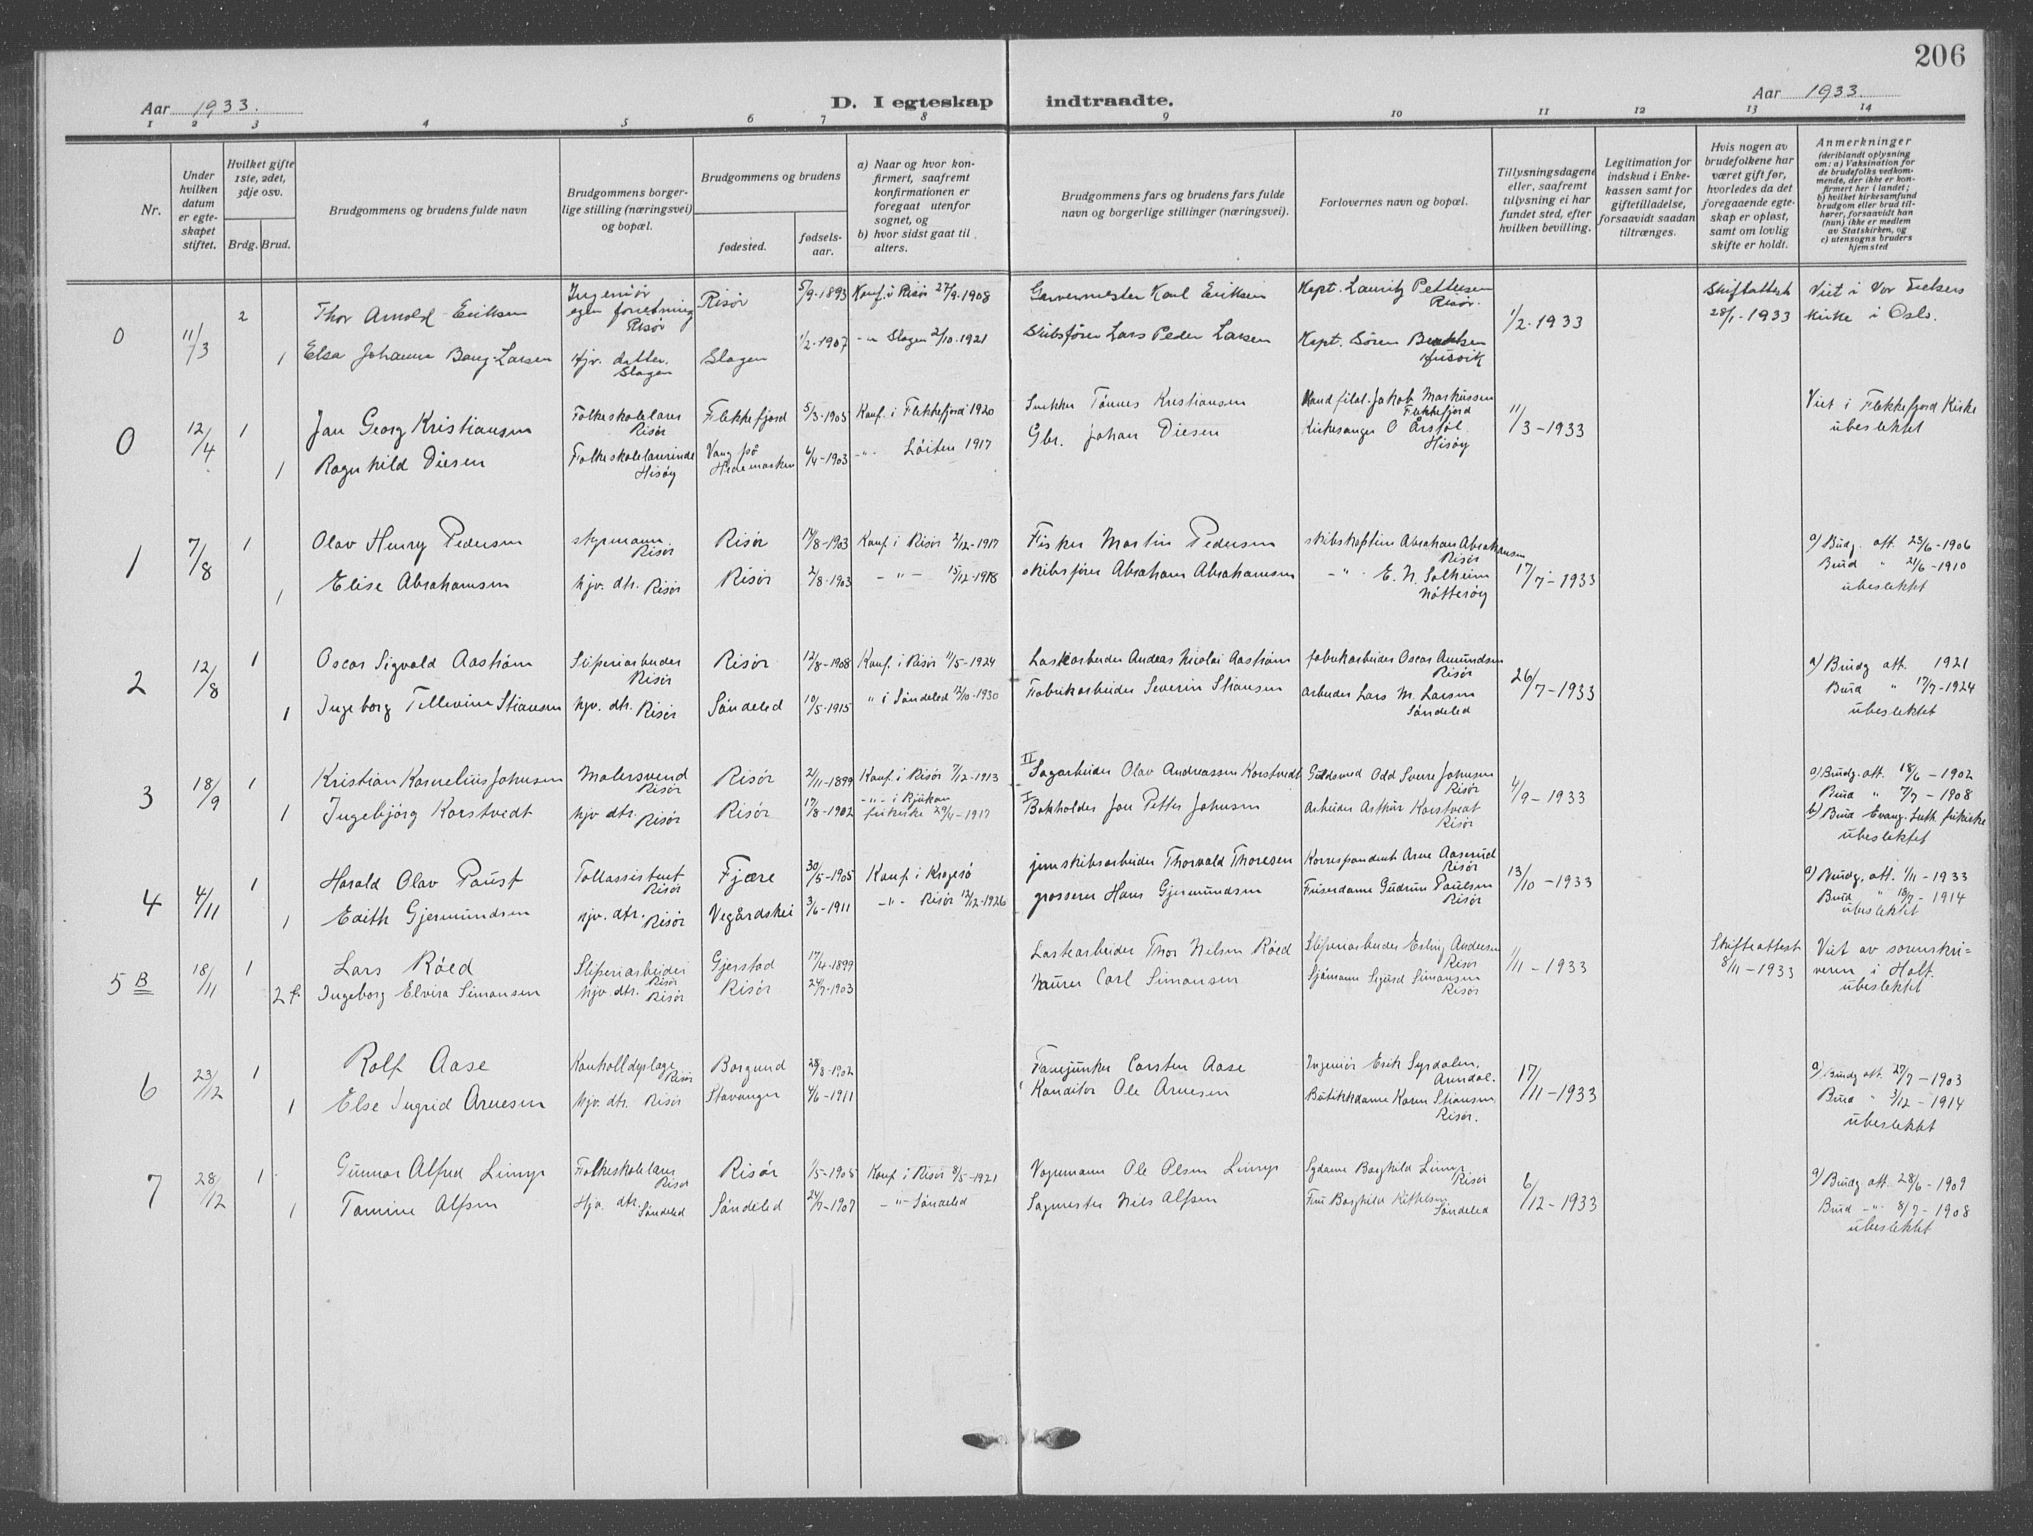 206
Aar 1933.
D. I egteskap indtraadte.
Aar 1933.
1 2 3 4 5 6 7 8 9 10 11 12 13 14
Nr.
Under hvilken datum er egteskapet stiftet.
Hvilket gifte 1ste, 2det, 3dje osv.
Brdg. Brud.
Brudgommens og brudens fulde navn
Brudgommens borgerlige stilling (næringsvei) og bopæl.
Brudgommens og brudens
fødested.
fødselsaar.
a) Naar og hvor konfirmert, saafremt konfirmationen er foregaat utenfor sognet, og
b) hvor sidst gaat til alters.
Brudgommens fars og brudens fars fulde navn og borgerlige stillinger (næringsvei).
Forlovernes navn og bopæl.
Tillysningsdagene eller, saafremt tillysning ei har fundet sted, efter hvilken bevilling.
Legitimation for indskud i Enkekassen samt for giftetilladelse, forsaavidt saadan tiltrænges.
Hvis nogen av brudefolkene har været gift før, hvorledes da det foregaaende egteskap er opløst, samt om lovlig skifte er holdt.
Anmerkninger
(deriblandt oplysning om: a) Vaksination for de brudefolks vedkommende, der ikke er konfirmert her i landet; b) hvilket kirkesamfund brudgom eller brud tilhører, forsaavidt han (hun) ikke er medlem av Statskirken, og c) utensogns bruders hjemsted
0 11/3 2 Thor Arnold Eriksen Ingeniør egen forretning Risør Risør 5/9-1893 Konf. i Risør 27/9-1908 Garvermester Karl Eriksen Kapt. Lauritz Pettersen Risør. 1/2-1933 Skifteattest 28/1-1933 Viet i Vor Frelsers kirke i Oslo.
1 Elsa Johanne Bang-Larsen Hjv. datter. Slagen Slagen 1/2-1907 -"- Slagen 2/10-1921 Skibsfører Lars Peder Larsen Kapt. Søren Husvik
0 12/4 1 Jan Georg Kristiansen Folkeskolelærer Risør Flekkefjord 5/3-1905 Konf. i Flekkefjord 1920 Snekker Tønnes Kristiansen Kand filol. Jakob Markussen Flekkefjord 11/3-1933 Viet i Flekkefjord Kirke
ubeslektet
1 Ragnhild Diesen Folkeskolelærerinde Hisøy Vang på Hedemarken 6/4-1903 -"- Løiten 1917 Gbr. Johan Diesen Kirkesanger O Hisøy
1 7/8 1 Olav Henry Pedersen styrmann Risør Risør 14/8-1903 Konf. i Risør 2/12-1917 Fisker Martin Pedersen skibskaptein Abraham Abrahamsen Risør 17/7-1933 a) Brudg. att. 23/6-1906
1 Elise Abrahamsen hjv. dtr. Risør Risør 2/8-1903 -"- 15/12-1918 skibsfører Abraham Abrahamsen -"- E. N. Solheim Nøtterøy Brud " 21/6-1910
ubeslektet
2 12/8 1 Oscar Sigvald Aastrøm Sliperiarbeider Risør Risør 12/8-1908 Konf. i Risør 11/5-1924 Lastearbeider Andreas Nicolai Aastrøm fabrikarbeider Oscar Amundsen Risør 26/7-1933 a) Brudg att. 1921
1 Ingeborg Tellevine Stiansen hjv. dtr. Risør Søndeled 10/5-1915 " i Søndeled 12/10-1930 Fabrikarbeider Severin Stiansen arbeider Lars M. Larsen Søndeled Brud " 17/7-1924
ubeslektet
3 18/9 1 Kristian Kornelius Johnsen Malersvend Risør Risør 2/11-1899 Konf. i Risør 7/12-1913 II Sagarbeider Olav Andreassen Korstvedt Guldsmed Odd Sverre Johnsen Risør 4/9-1933 a) Brudg. att. 18/6-1902
1 Ingebjørg Korstvedt hjv dtr. Risør Risør 17/8-1902 -"- i Rjukan frikirke 29/4-1917 I Bokholder Jon Petter Johnsen Arbeider Arthur Korstvedt Risør Brud " 7/7-1908
b) Brud Evang. Luth. frikirke
ubeslektet
4 4/11 1 Harald Olav Paust Tollassistent Risør Fjære 30/5-1905 Konf i Kragerø jernskibsarbeider Thorvald Thoresen Korrespondent Arne Aaserud Risør 13/10-1933 a) Brudg. att. 1/11-1933
1 Edith Gjermundsen hjv. dtr. Risør Vegårdshei 3/6-1911 -"- Risør 12/12-1926 grosserer Hans Gjermundsen Friserdame Gudrun Paulsen Risør Brud " 18/7-1914
ubeslektet
5 B 18/11 1 Lars Røed Sliperiarbeider Risør Gjerstad 17/4-1899 Lastearbeider Thor Nilsen Røed Sliperiarbeider Erling Andersen Risør 1/11-1933 Skifteattest 8/11-1933 Viet av sorenskriveren i Holt.
2 f. Ingeborg Elvira Simonsen hjv. dtr. Risør Risør 24/7-1903 Murer Carl Simonsen Sjømann Sigurd Simonsen Risør ubeslektet
6 23/12 1 Rolf Aase Risør Borgund 28/8-1902 Fanejunker Carsten Aase Ingeniør Erik Syrdalen, Arendal. 17/11-1933 a) Brudg att. 27/7-1903
1 Else Ingrid Arnesen hjv. dtr. Risør Stavanger 4/6-1911 Konditor Ole Arnesen Butikkdame Karen Stiansen Risør. Brud " 3/12-1914
ubeslektet
7 28/12 1 Gunnar Alfred Limyr Folkeskolelærer Risør Risør 1/5-1905 Konf i Risør 8/5-1921 Vognmann Ole Olsen Limyr Sydame Borghild Limyr Risør 6/12-1933 a) Brudg att. 28/6-1909
1 Tomine Alfsen Hjv. dtr. Søndeled Søndeled 24/7-1907 -"- Søndeled Sagmester Nils Alfsen Fru Borghild Kittelsen Søndeled Brud -"- 8/7-1908
ubeslektet